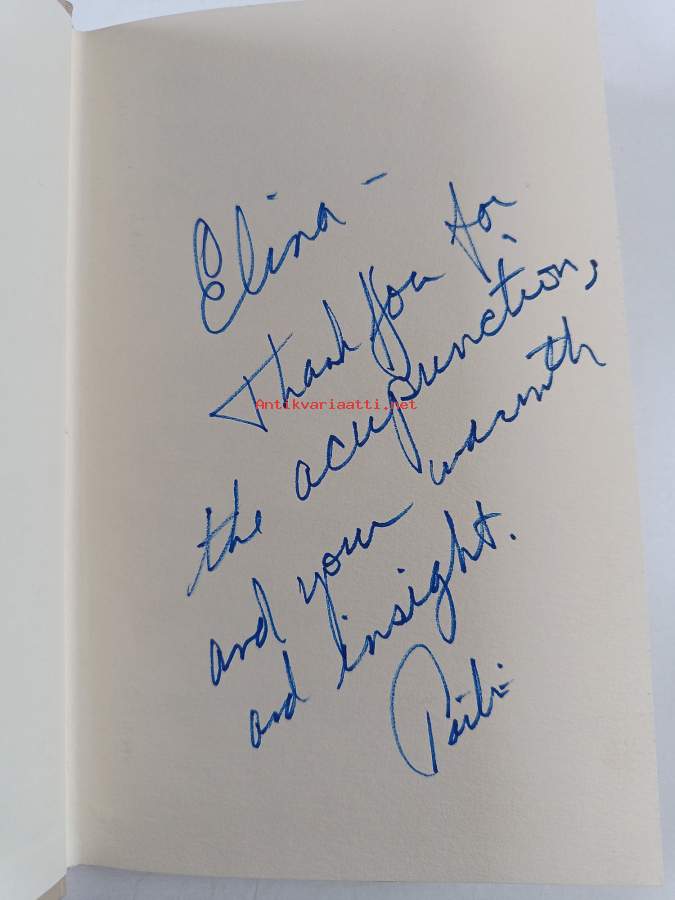 Elina –
Thank you for
the acupunction,
and your warmth
and insight.
Antikvariaatti.net